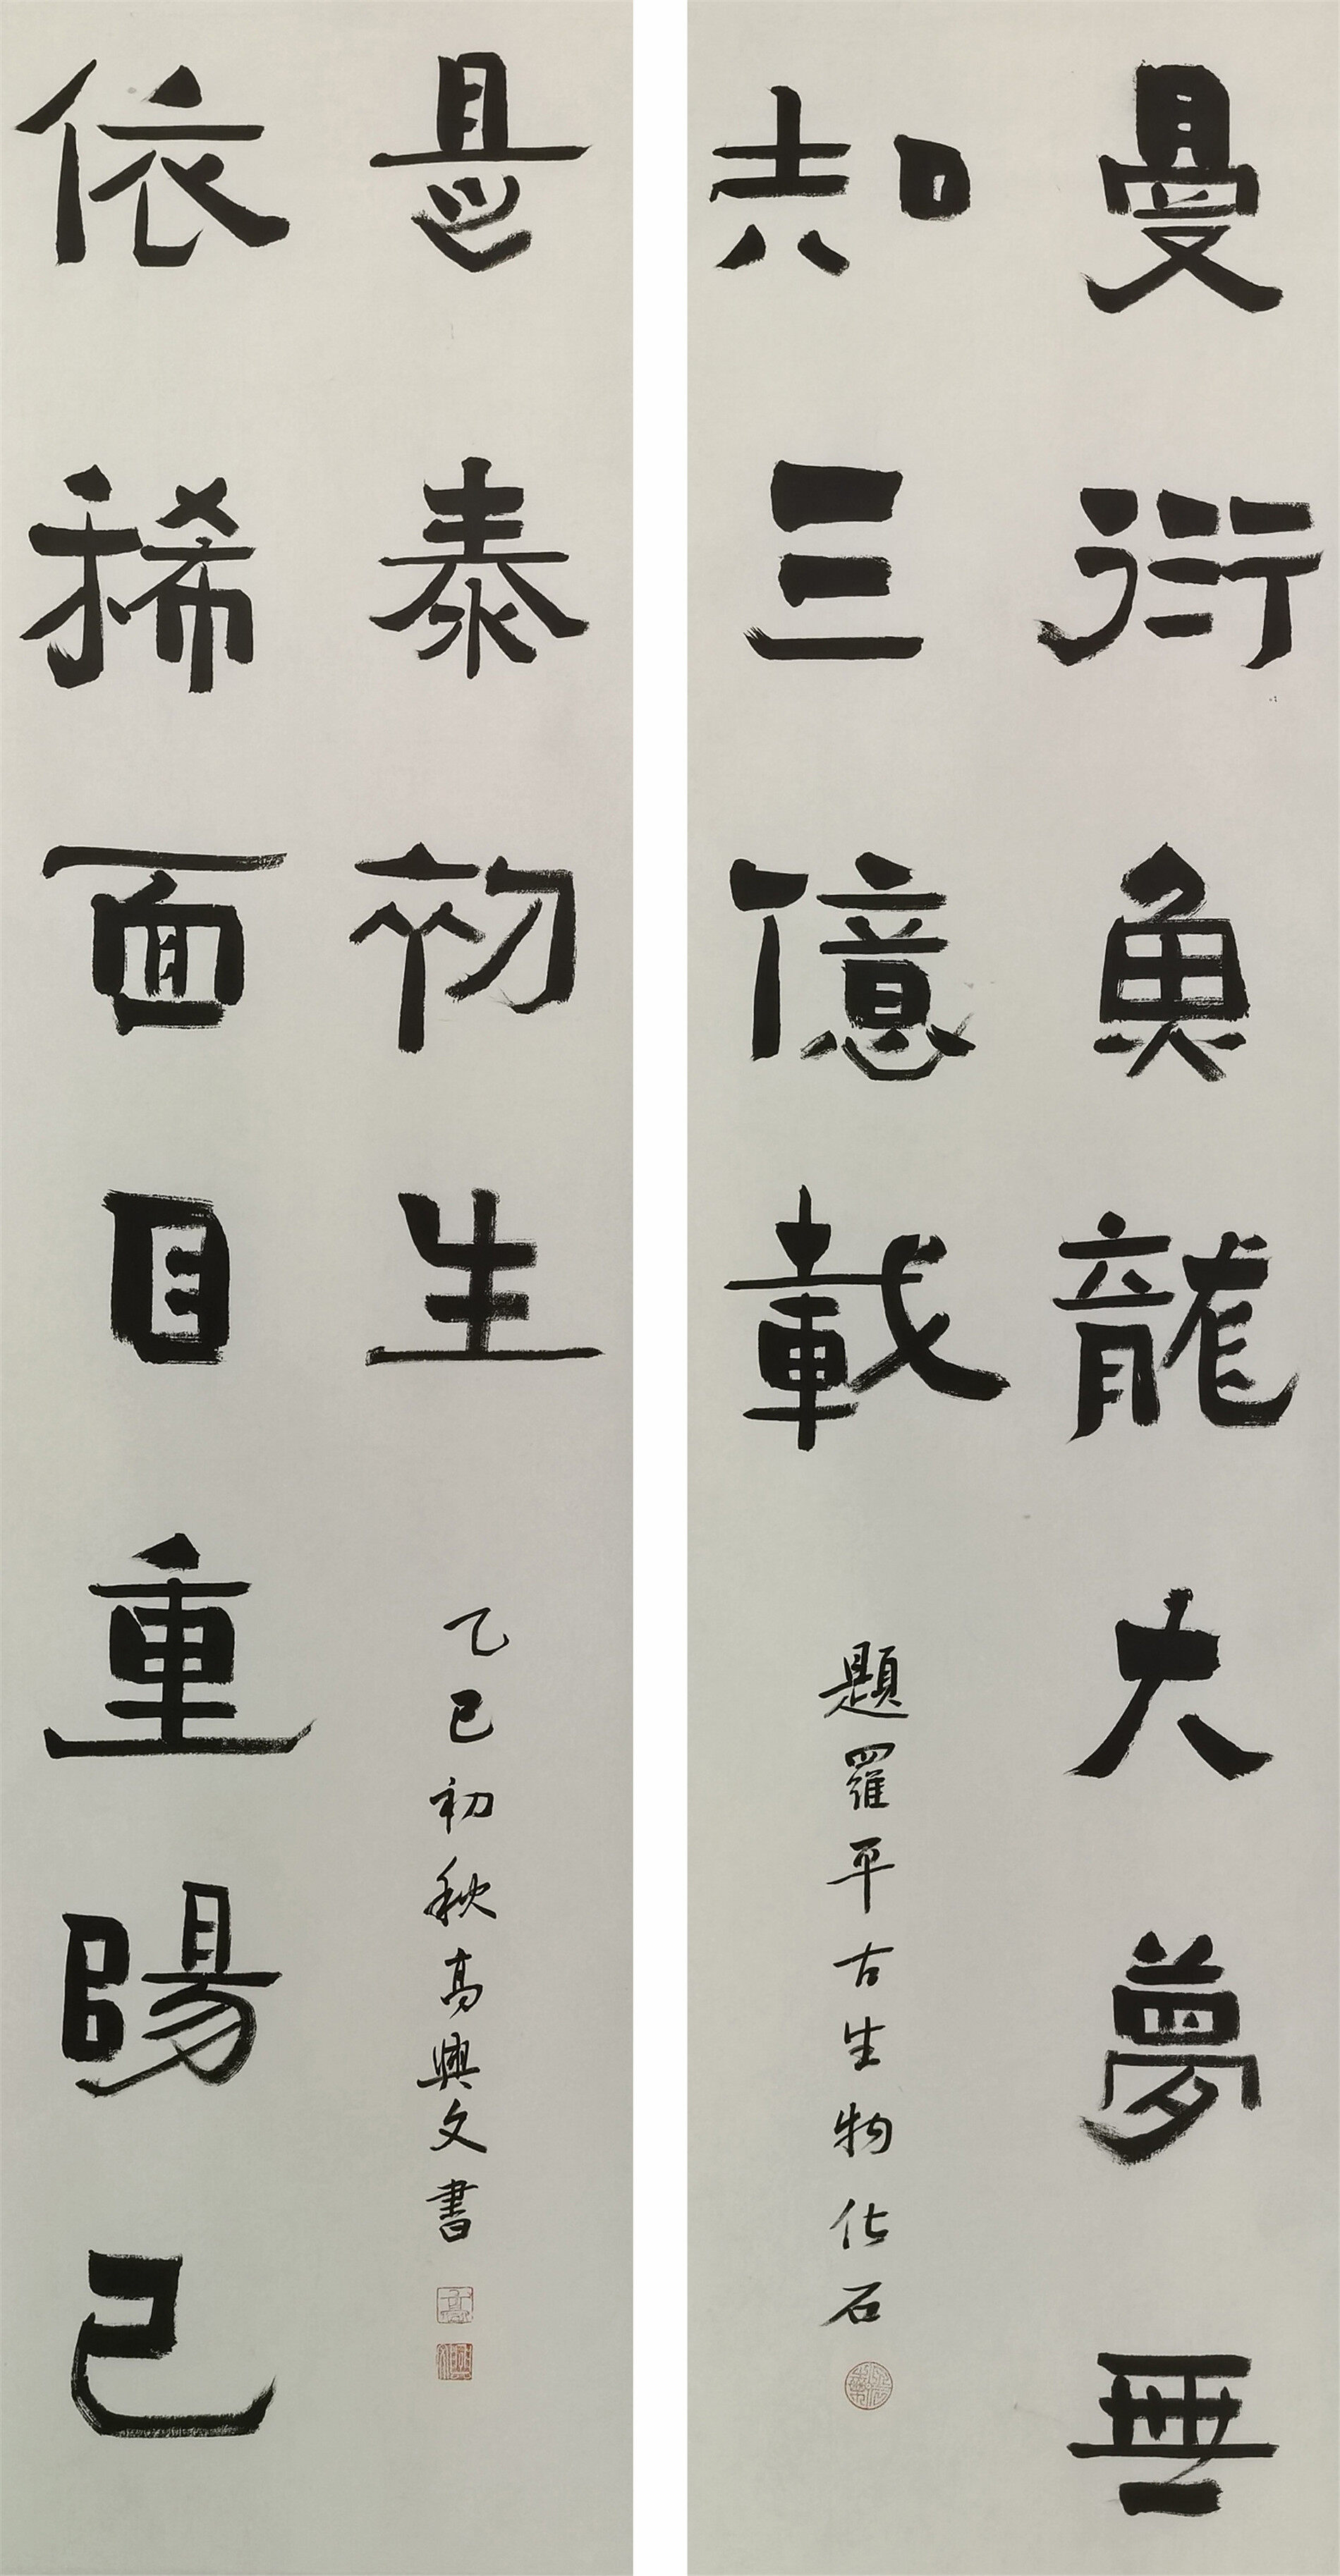 曼衍魚龍大夢無
知三億載
題羅平古生物化石
依稀面目重陽已
是泰初生
乙巳初秋高興文書